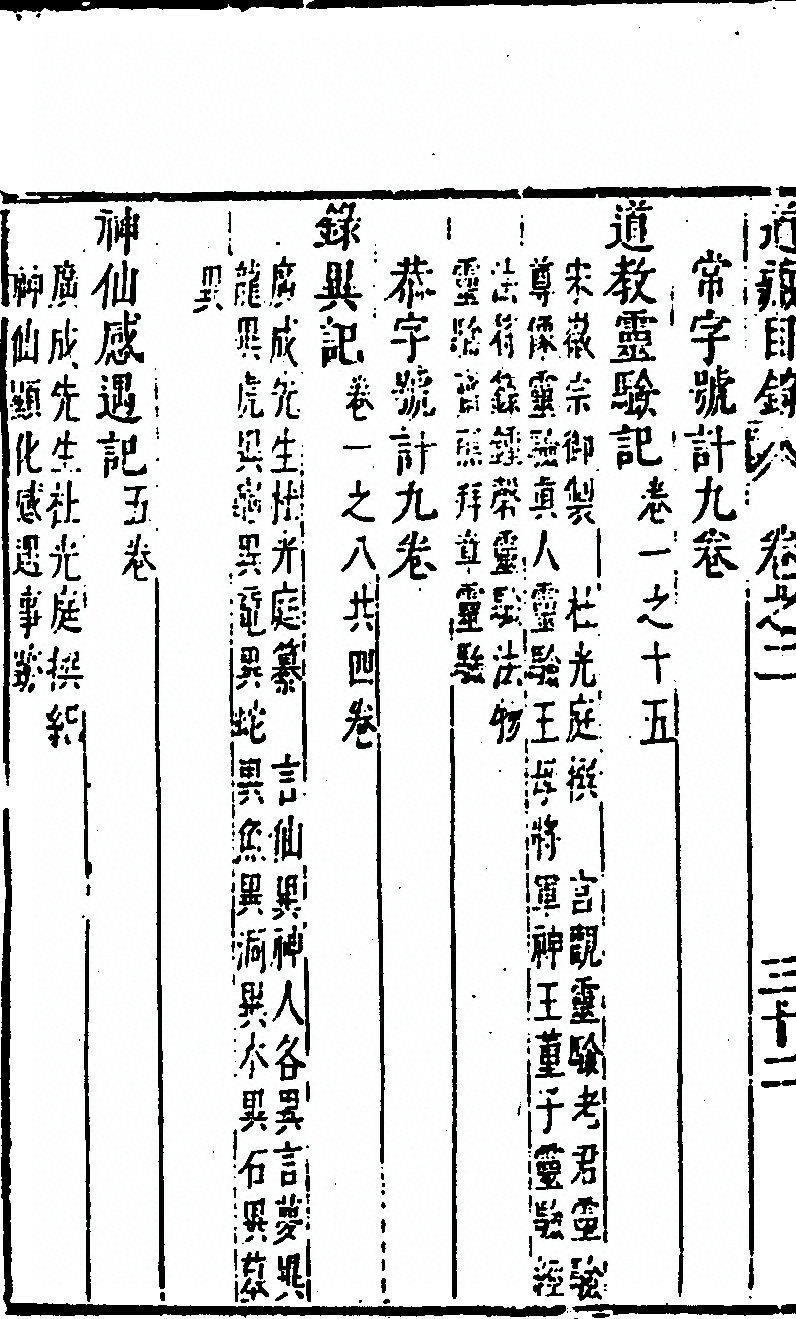 道藏目錄 卷之二 三十二
常字號計九卷
道教靈驗記 卷一之十五
宋徽宗御製 杜光庭撰 言觀靈驗老君靈驗
尊像靈驗真人靈驗王母將軍神王童子靈驗經
法符籙鍾磬靈驗法物
靈驗齋醮拜章靈驗
恭字號計九卷
錄異記 卷一之八共四卷
廣成先生杜光庭纂 言仙異神人各異言夢異
龍異虎異龜異黿異蛇異魚異洞異木異石異墓
異
神仙感遇記 五卷
廣成先生杜光庭撰紀
神仙顯化感遇事蹟